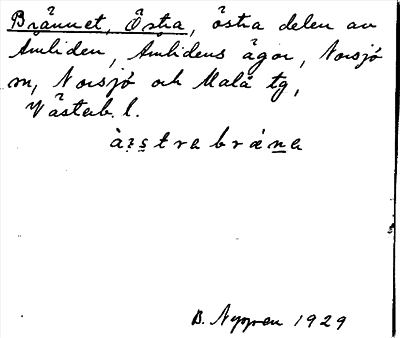 Brännet, Östra, östra delen av
Åmliden, Åmlidens ägor, Norsjö
sn, Norsjö och Malå tg,
Västerb. l.
B. Nygren 1929